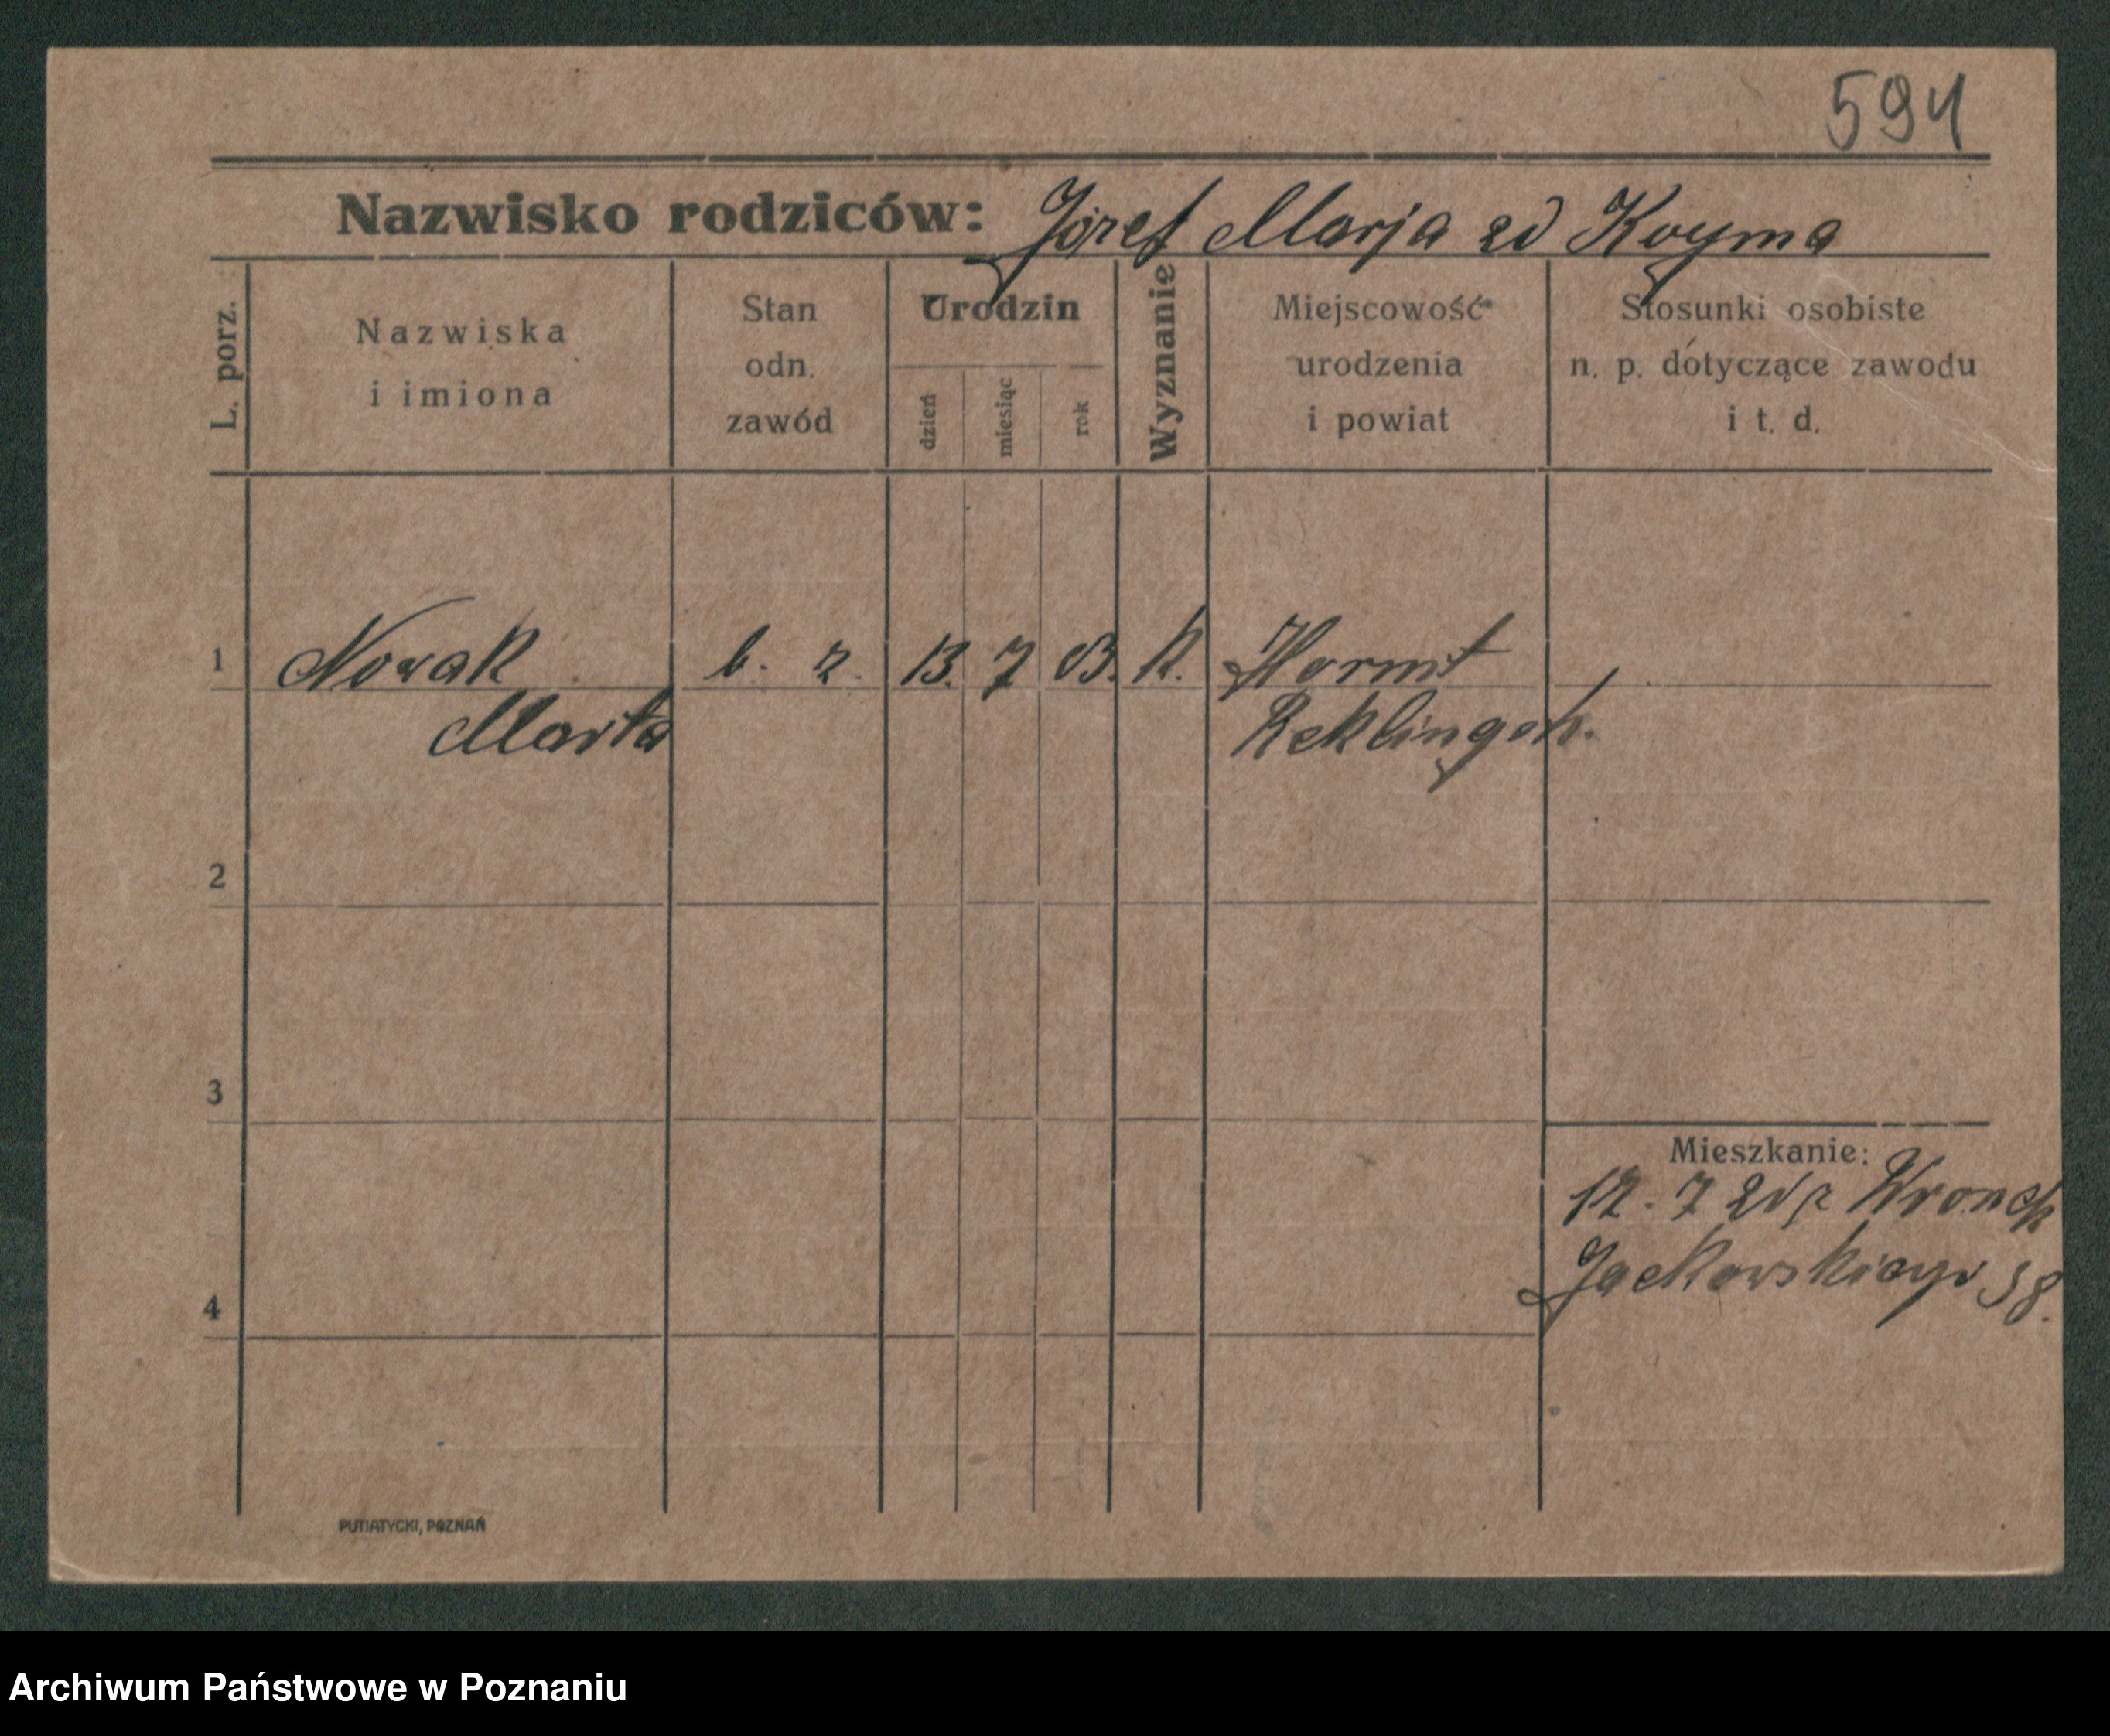 591
Nazwisko rodziców: Józef Marja zd Kryma
L. porz.
Nazwiska
i imiona
Stan
odn.
zawód
Urodzin
dzień
miesiąc
rok
Wyznanie
Miejscowość
urodzenia
i powiat
Stosunki osobiste
n. p. dotyczące zawodu
i t. d.
1 Nowak b. z. 13. 7 03. k. Hormt
Marta Reklingsh.
2
3
Mieszkanie:
12. 7 Wronek
Jackowskiego 38.
4
PUTIATYCKI, POZNAŃ
Archiwum Państwowe w Poznaniu